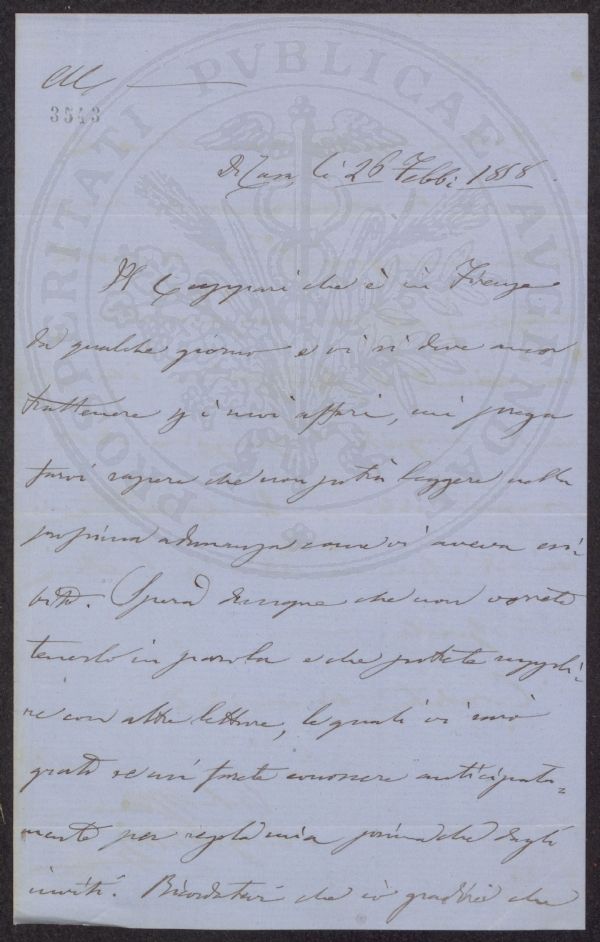 3543
Di Casa, li 26 Febb: 1858.
Il Cuppari che è in Firenze
da qualche giorno e vi si deve ancor
trattenere p i suoi affari, mi prega
farvi sapere che non potrà leggere nella
prossima adunanza come vi aveva esi=
bito. Spera dunque che non vorrete
tenerlo in parola e che potrete suppli=
re con altre letture, le quali vi sarò
grato se mi farete conoscere anticipata=
mente per regola mia prima che degli
inviti. Ricordatevi che io gradirei che
PROSPERITATI PVBLICAE AVGENDAE